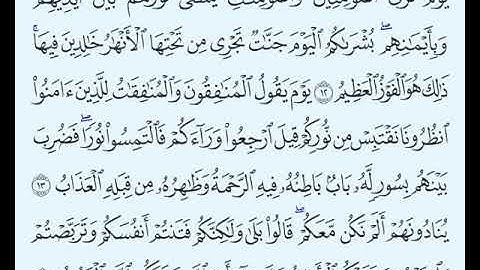 يَوْمَ تَرَى الْمُؤْمِنِينَ وَالْمُؤْمِنَاتِ يَسْعَىٰ نُورُهُم بَيْنَ أَيْدِيهِمْ
وَبِأَيْمَـٰنِهِمۖ بُشْرَىٰكُمُ ٱلْيَوْمَ جَنَّـٰتٌ تَجْرِى مِن تَحْتِهَا ٱلْأَنْهَـٰرُ خَـٰلِدِينَ فِيهَاۚ
ذَٰلِكَ هُوَ ٱلْفَوْزُ ٱلْعَظِيمُ ١٢ يَوْمَ يَقُولُ ٱلْمُنَـٰفِقُونَ وَٱلْمُنَـٰفِقَـٰتُ لِلَّذِينَ ءَامَنُوا۟
ٱنظُرُونَا نَقْتَبِسْ مِن نُّورِكُمْ قِيلَ ٱرْجِعُوا۟ وَرَآءَكُمْ فَٱلْتَمِسُوا۟ نُورًاۖ فَضُرِبَ
بَيْنَهُم بِسُورٍ لَّهُۥ بَابٌۢ بَاطِنُهُۥ فِيهِ ٱلرَّحْمَةُ وَظَـٰهِرُهُۥ مِن قِبَلِهِ ٱلْعَذَابُ ١٣
يُنَادُونَهُمْ أَلَمْ نَكُن مَّعَكُمْۖ قَالُوا۟ بَلَىٰ وَلَـٰكِنَّكُمْ فَتَنتُمْ أَنفُسَكُمْ وَتَرَبَّصْتُمْ